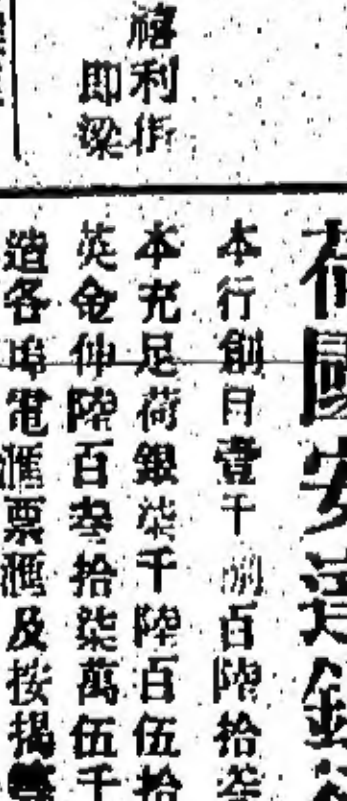 禧利街
即梁
荷國安達銀
本行創自壹千捌百陸拾叁
本充足荷銀柒千陸百伍拾
英金伸陸百叁拾柒萬伍千
造各埠電滙票滙及按揭等